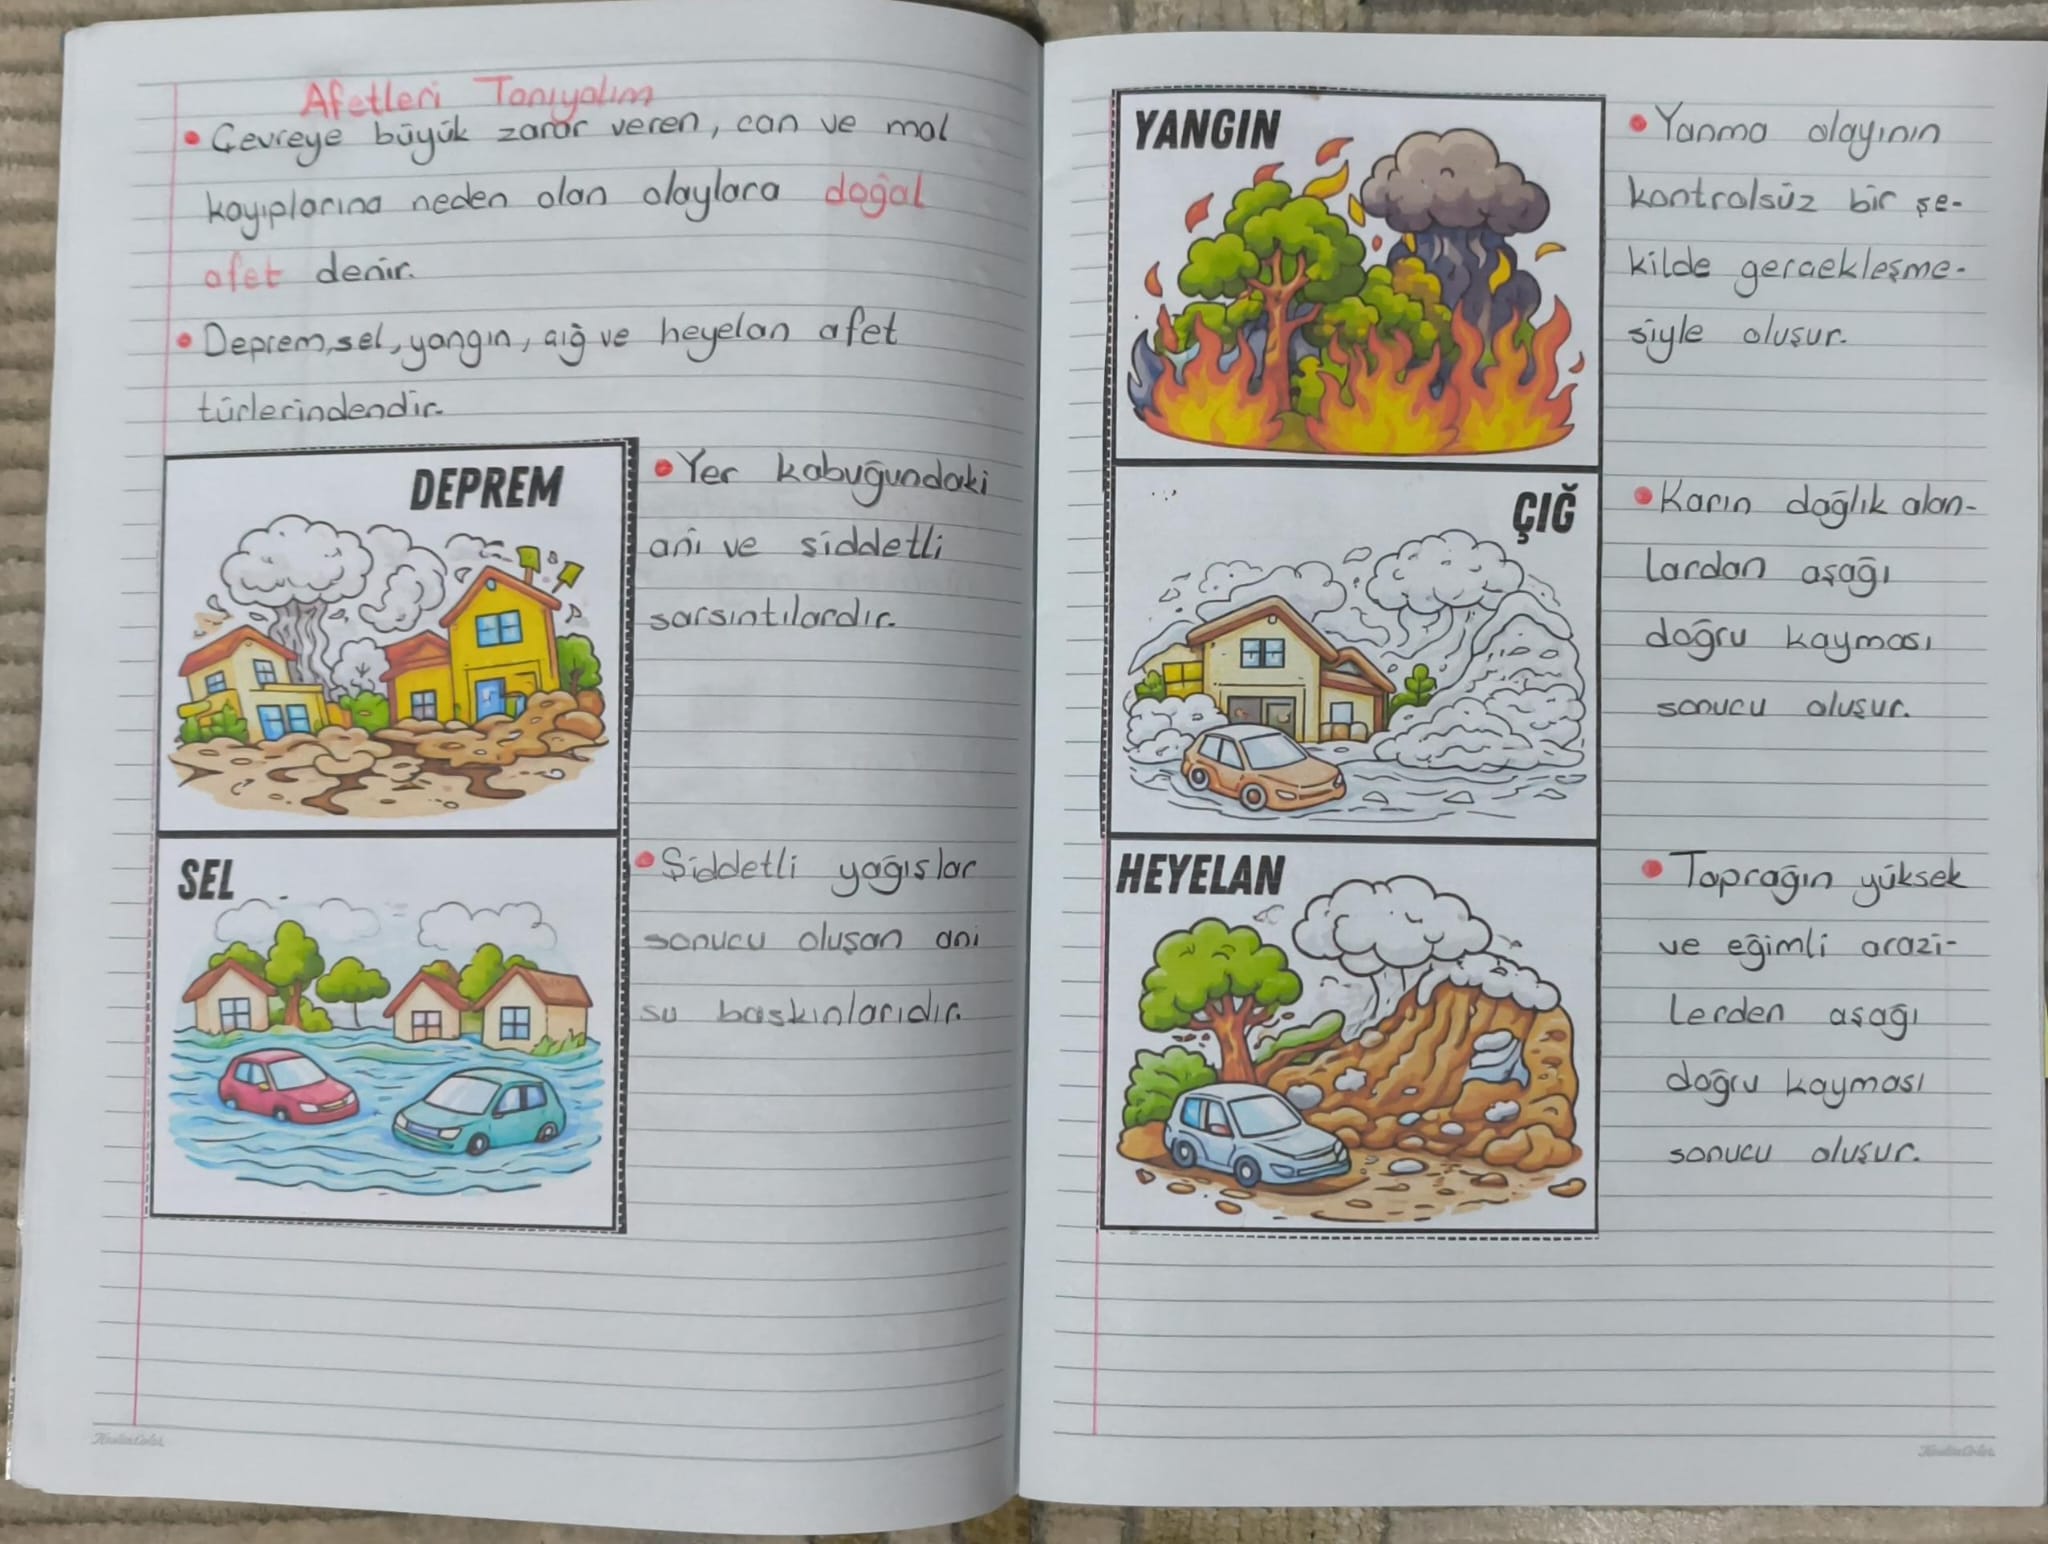 Afetleri Tanıyalım
• Çevreye büyük zarar veren, can ve mal
kayıplarına neden olan olaylara doğal
afet denir.
• Deprem, sel, yangın, çığ ve heyelan afet
türlerindendir.
DEPREM
• Yer kabuğundaki
ani ve şiddetli
sarsıntılardır.
SEL
• Şiddetli yağışlar
sonucu oluşan ani
su baskınlarıdır.
YANGIN
• Yanma olayının
kontrolsüz bir şe-
kilde gerçekleşme-
siyle oluşur.
ÇIĞ
• Karın dağlık alan-
lardan aşağı
doğru kayması
sonucu oluşur.
HEYELAN
• Toprağın yüksek
ve eğimli arazi-
lerden aşağı
doğru kayması
sonucu oluşur.